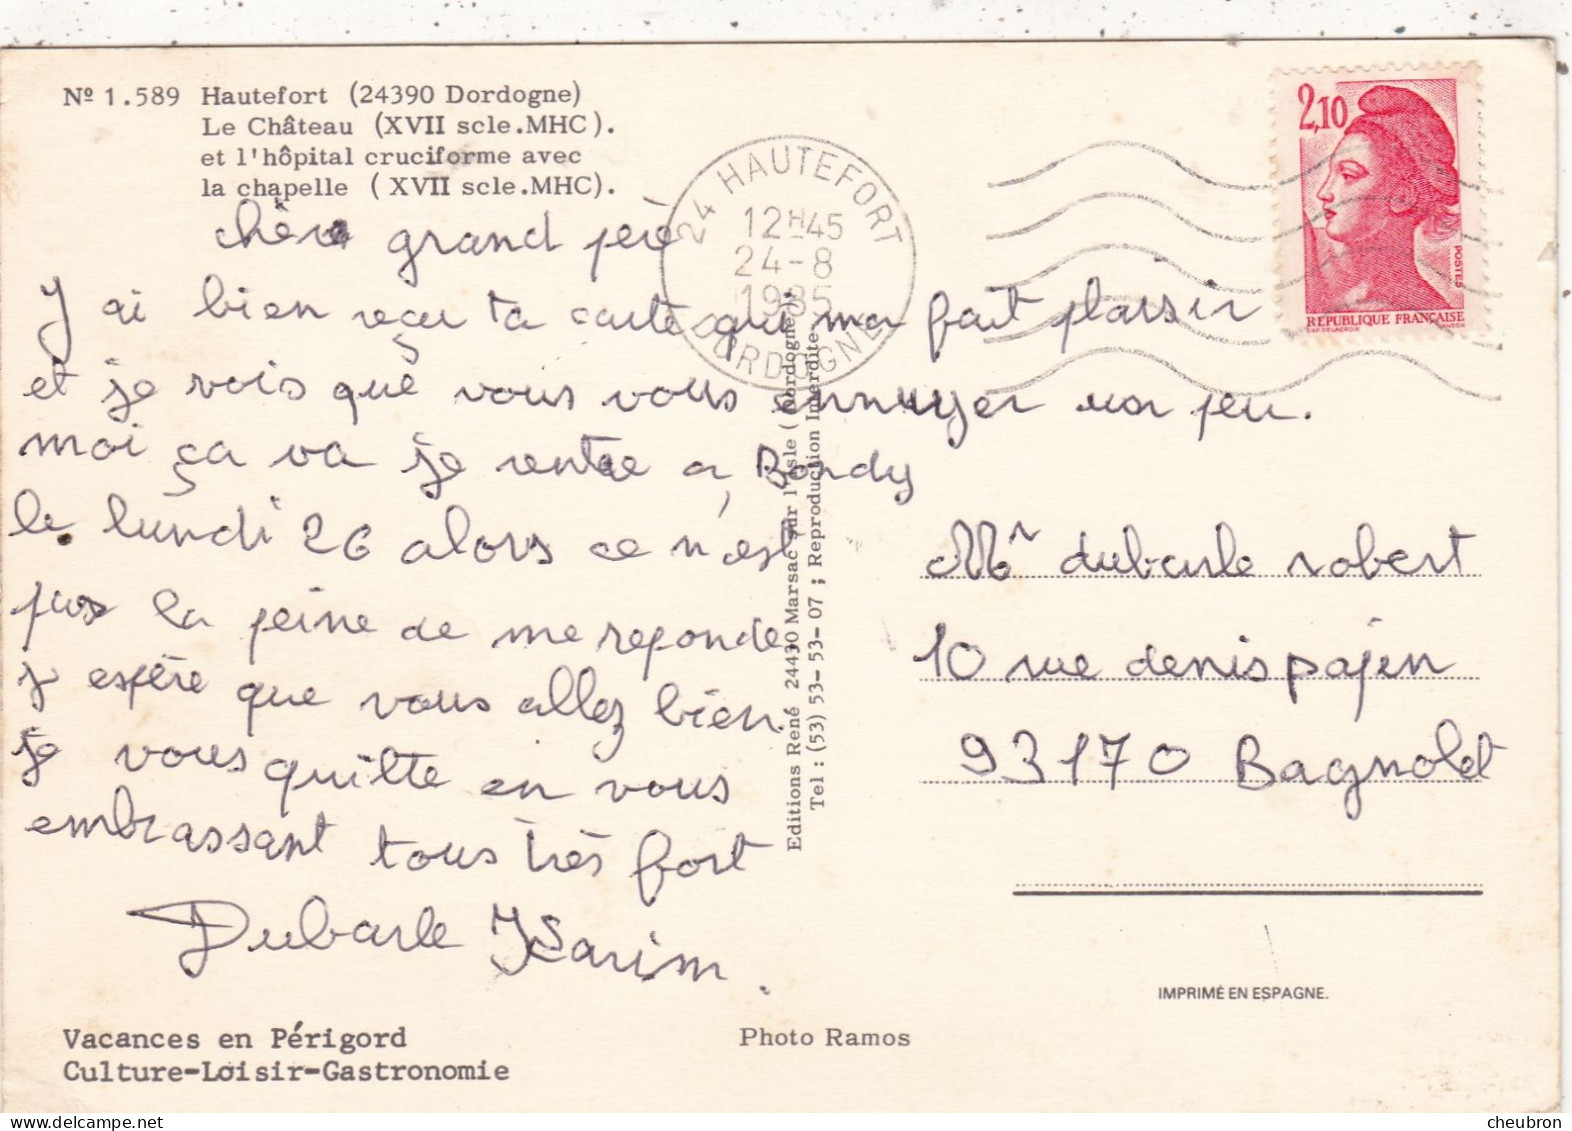 Nº 1.589 Hautefort (24390 Dordogne)
Le Château (XVII scle.MHC).
et l'hôpital cruciforme avec
la chapelle ( XVII scle.MHC).
grand père
J ai bien reçu ta carte qui ma fait plaisir
et je vois que vous vous ennuyer un peu.
moi ça va je rentre a Bondy
le lundi 26 alors ce n'est
pas la peine de me reponde
j espère que vous allez bien.
je vous quitte en vous
embrassant tous très fort
Dubarle Karim.
Vacances en Périgord
Culture-Loisir-Gastronomie
24 HAUTEFORT
12H45
24-8
1985
DORDOGNE
Editions René 24430 Marsac sur l'Isle (Dordogne)
Tel : (53) 53-53-07 ; Reproduction Interdite.
Photo Ramos
2,10
POSTES
REPUBLIQUE FRANÇAISE
Mr dubarle robert
10 rue denis pajen
93170 Bagnolet
IMPRIMÉ EN ESPAGNE.
cheubron